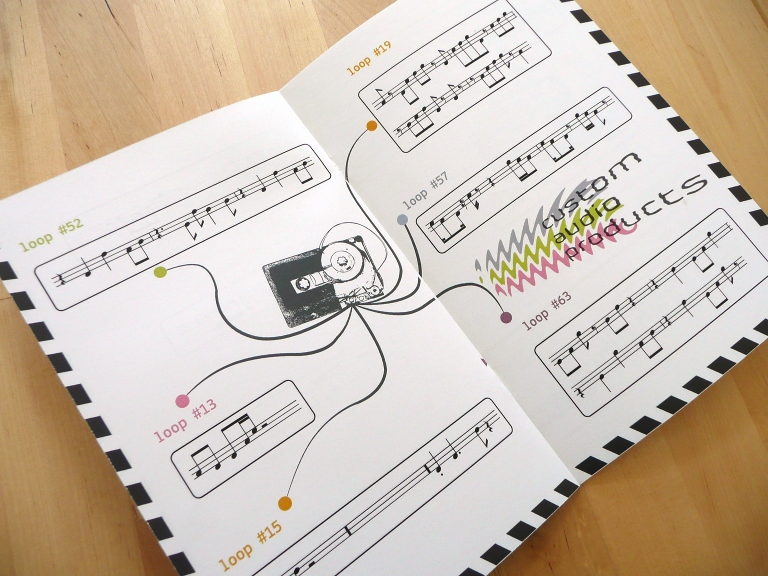 loop #52
loop #13
loop #15
loop #19
loop #57
custom
audio
products
loop #63